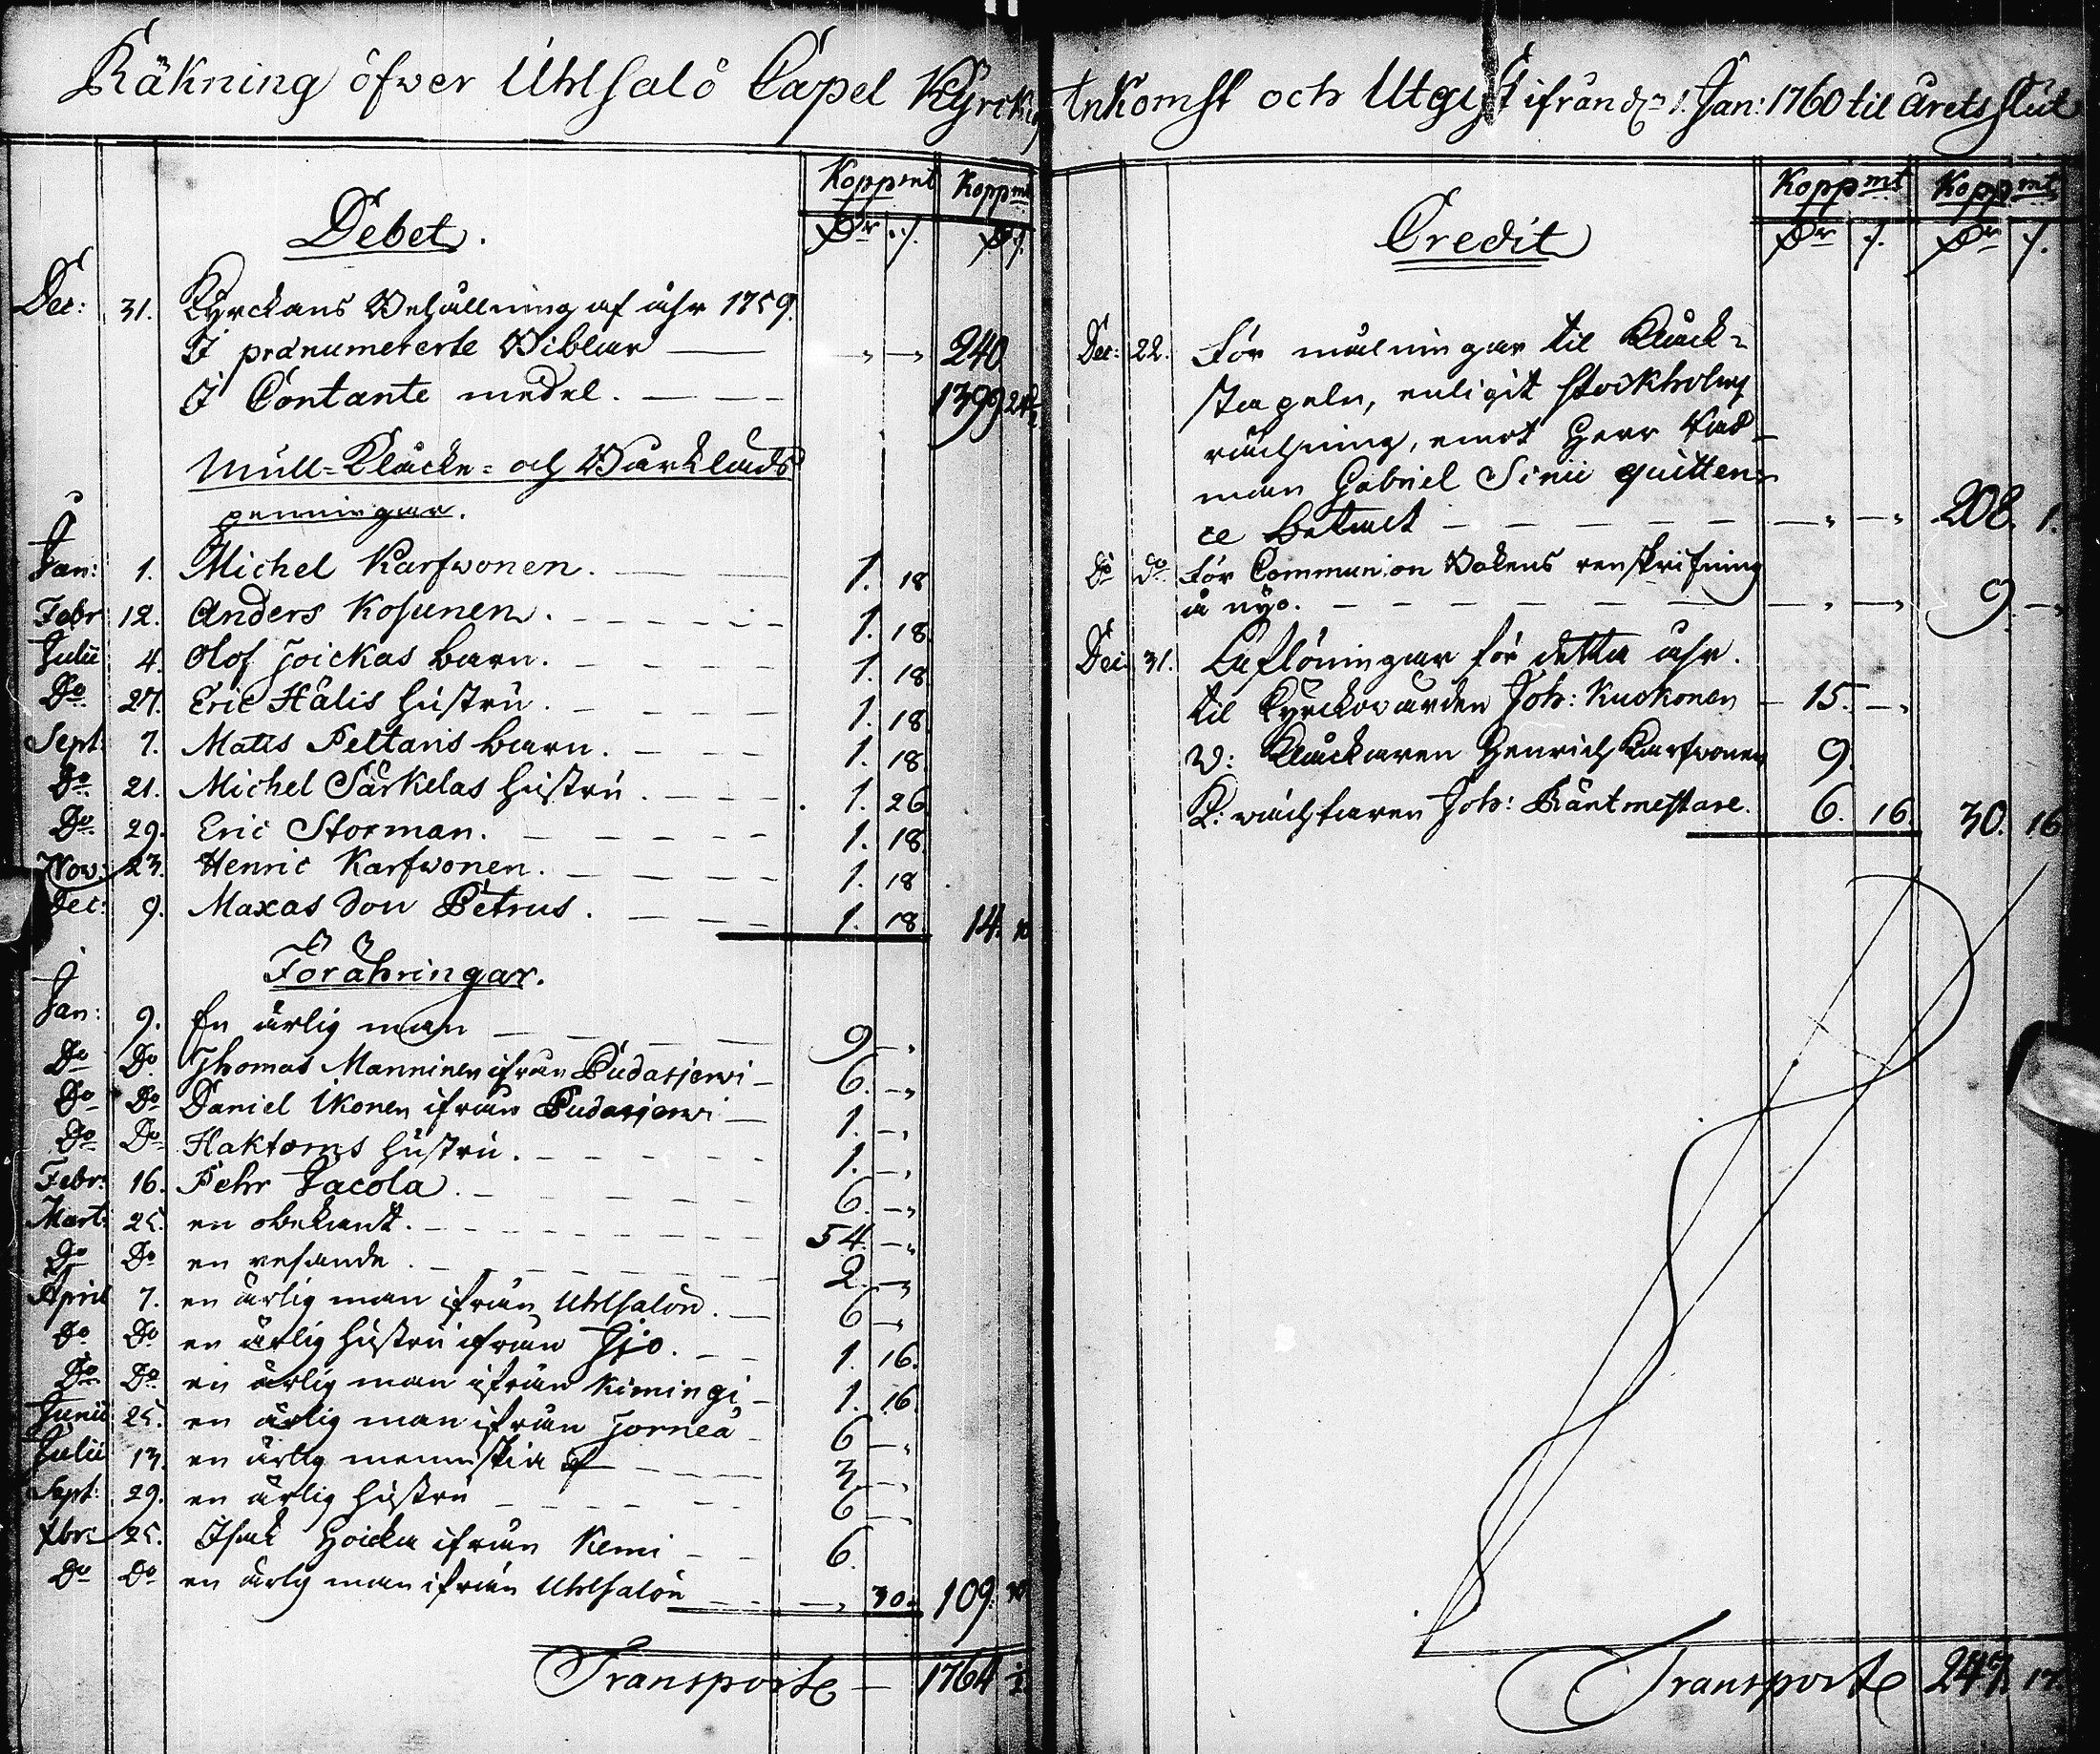 Räkning öfwer Uhlsalö Capel Kyrckios Inkomst och Utgift ifrån d. 1. Jan: 1760 til årets slut
Koppmt Koppmt
Debet.
Dr ./. Dr ./.
Dec: 31. Kyrckans Behållning af åhr 1759.
I prænumererte Biblar — 240
I Contante medel. — 1399 24
Mull- Klåcke- och Bårklads
penningar.
Jan: 1. Michel Karfwonen. — 1. 18
Febr 12. Anders Kosunen. — 1. 18.
Julii 4. Olof Joickas barn. — 1. 18
Do 27. Eric Hålis hustru. — 1. 18
Sept: 7. Matts Peltaris barn. — 1. 18
Do 21. Michel Särkelas hustru. — 1. 26
Do 29. Eric Storman. — 1. 18.
Nov: 23. Henric Karfwonen. — 1. 18
Dec: 9. Maxas Petrus. — 1. 18. 14. 10
Förähringar.
Jan: 9. En ärlig man — 9 —
Do Do Thomas Manninen ifrån Pudasjerwi — 6. —
Do Do Daniel Ikonen ifrån Pudasjerwi — 1. —
Do Do Haktorns hustru. — 1. —
Febr: 16. Pehr Jacola. — 6. —
Mart: 25. en obekant. — 54. —
Do Do en resande. — 2. —
April 7. en ärlig man ifrån Uhlsalön. — 6 —
Do Do en ärlig hustru ifrån Ijo. — 1. 16.
Do Do en ärlig man ifrån Kimingi — 1. 16.
Junii 25. en ärlig man ifrån Torneå — 6 —
Julii 13. en ärlig menniskia — 3. —
Sept: 29. en ärlig hustru — 6 —
Xbr: 25. Isak Hoicka ifrån Kemi — 6.
Do Do en ärlig man ifrån Uhlsalön — 30. 109. 30
Transporte — 1764
Koppmt Koppmt
Credit
Dr ./. Dr ./.
Dec: 22. För målningar til Klåck-
stapeln, enligit Stockholms
räckning, emot Herr Råd-
man Gabriel quitten-
ce betalt — 208. 1.
Do do För Communion Bokens renskrifning
å nyo. — 9. —
Dec: 31. Aflöningar för detta åhr.
til Kyrckowärden Joh: Kuokonen — 15. —
D: Klåckaren Henrich Karfwonen 9.
K: wächtaren Joh: Räntmestare. 6. 16. 30. 16
Transporte 247. 17.